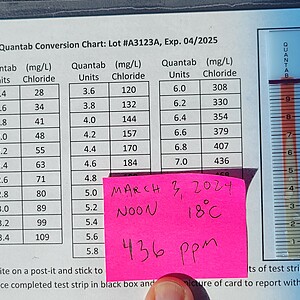 Quantab Conversion Chart: Lot #A3123A, Exp. 04/2025
(mg/L) Quantab (mg/L) 6.0 308
Chloride Units Chloride 6.2 330
.4 28 3.6 120 6.4 354
.6 34 3.8 132 6.6 379
.8 41 4.0 144 6.8 407
.0 48 4.2 157 7.0 436
.2 55 4.4 170
.4 63 4.6 184
.6 71 4.8
.8 80 5.0
.0 89 5.2
.2 99 5.4
.4 109 5.6
5.8
MARCH 3, 2024
NOON 18°C
436 ppm
ite on a post-it and stick to
ts of test strip
ce completed test strip in black box and
picture of card to report with
QUANTAB
9
8